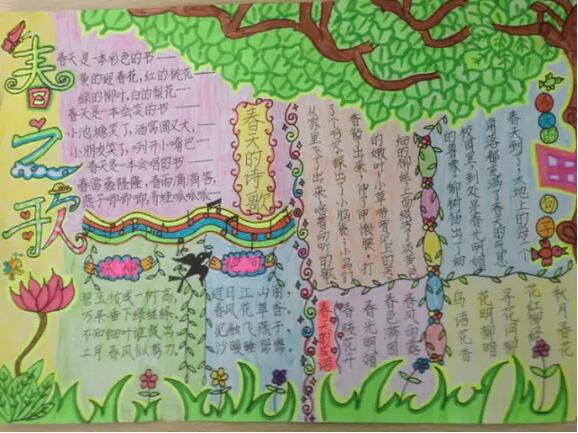 春之歌
春天是一本彩色的书——
黄的迎春花,红的桃花——
绿的柳叶,白的梨花……
春天是一本会笑的书——
小池塘笑了,酒窝圆又大,
小朋友笑了,咧开小嘴巴……
春天是一本会唱的书——
春雷轰隆隆,春雨滴滴答,
燕子唧唧唧,青蛙呱呱呱
春天的诗歌
咏柳
碧玉妆成一树高,
万条垂下绿丝绦。
不知细叶谁裁出,
二月春风似剪刀.
绝句
迟日江山丽
春风花草香
泥融飞燕子
沙暖睡鸳鸯
春天的句子
春天到了,大地上的每一个
角落都充满了春天的气息
校园里到处是春光明媚
的景象,柳树抽出了细
细的柳丝,上面缀满了淡黄色
的嫩叶;小草带着泥土的芳
香钻出来,伸了伸懒腰,打
了个哈欠探出了小脑袋;小鸟们
从家里飞了出来,唱着动听的歌
春天的成语
秋月春花
花红柳绿
寻花问柳
花明柳暗
鸟语花香
春风雨露
春色满园
春光明媚
春暖花开